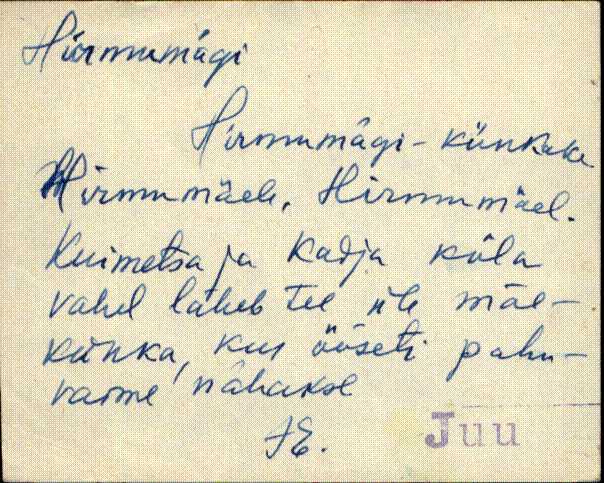 Hirmumägi
Hirmumägi - künkake
Hirmumäele, Hirmumäel.
Kuimetsa ja Kadja küla
vahel läheb tee üle mäe-
künka, kus ööseti pahu-
vaime nähakse
JE.
Juu